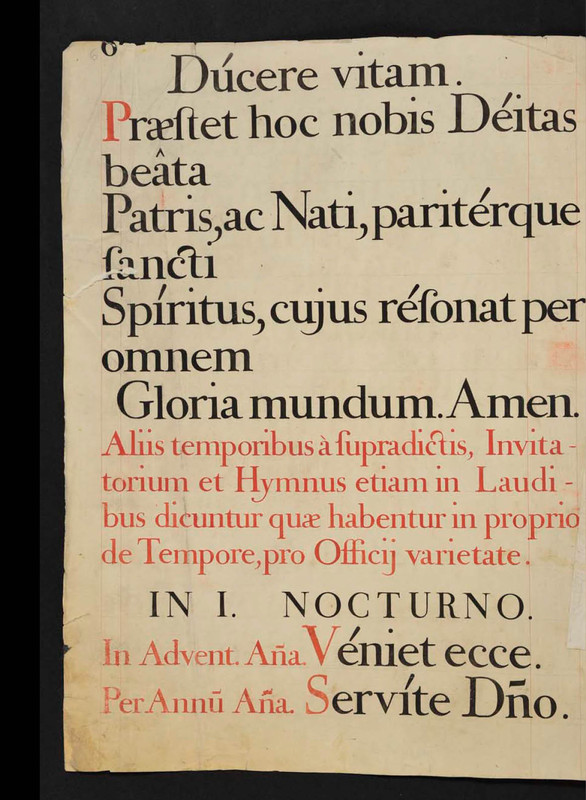 6
Dúcere vitam.
Præſtet hoc nobis Déitas
beâta
Patris, ac Nati, paritérque
ſancti
Spíritus, cujus réſonat per
omnem
Gloria mundum. Amen.
Aliis temporibus à ſupradictis, Invita-
torium et Hymnus etiam in Laudi-
bus dicuntur quæ habentur in proprio
de Tempore, pro Officij varietate.
IN I. NOCTURNO.
In Advent. Aña. Véniet ecce.
Per Annū Aña. Servíte Dño.